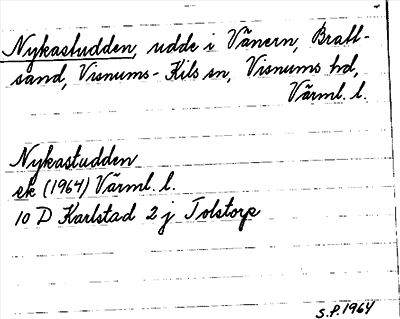 Nykastudden, udde i Vänern, Bratt-
sand, Visnums-Kils sn, Visnums hd,
Värml. l.
Nykastudden
ek (1964) Värml. l.
10 D Karlstad 2 j Tolstorp
S.P. 1964